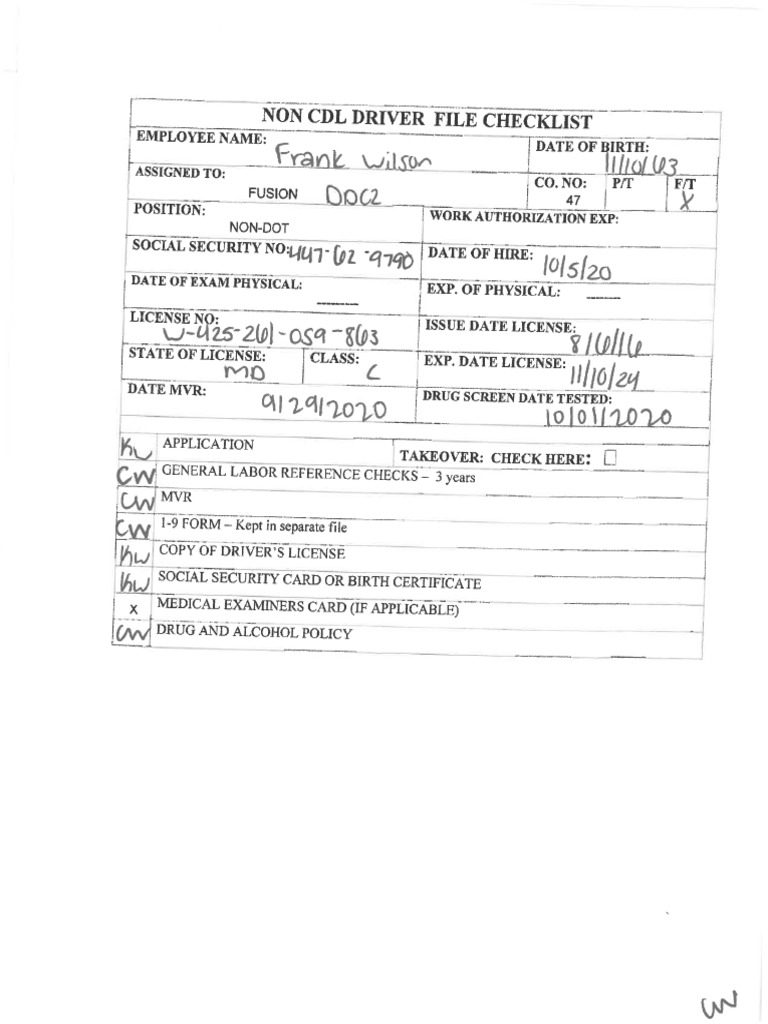 NON CDL DRIVER FILE CHECKLIST
EMPLOYEE NAME: Frank Wilson
DATE OF BIRTH: 11/10/63
ASSIGNED TO: FUSION DDC2
CO. NO: 47
P/T
F/T X
POSITION: NON-DOT
WORK AUTHORIZATION EXP:
SOCIAL SECURITY NO: 447-62-9790
DATE OF HIRE: 10/5/20
DATE OF EXAM PHYSICAL: ____
EXP. OF PHYSICAL: ____
LICENSE NO: W-425-261-059-863
ISSUE DATE LICENSE: 8/6/16
STATE OF LICENSE: MD
CLASS: C
EXP. DATE LICENSE: 11/10/24
DATE MVR: 9/29/2020
DRUG SCREEN DATE TESTED: 10/01/2020
KW APPLICATION
TAKEOVER: CHECK HERE: ☐
CW GENERAL LABOR REFERENCE CHECKS – 3 years
CW MVR
CW 1-9 FORM – Kept in separate file
KW COPY OF DRIVER'S LICENSE
KW SOCIAL SECURITY CARD OR BIRTH CERTIFICATE
x MEDICAL EXAMINERS CARD (IF APPLICABLE)
CW DRUG AND ALCOHOL POLICY
CW